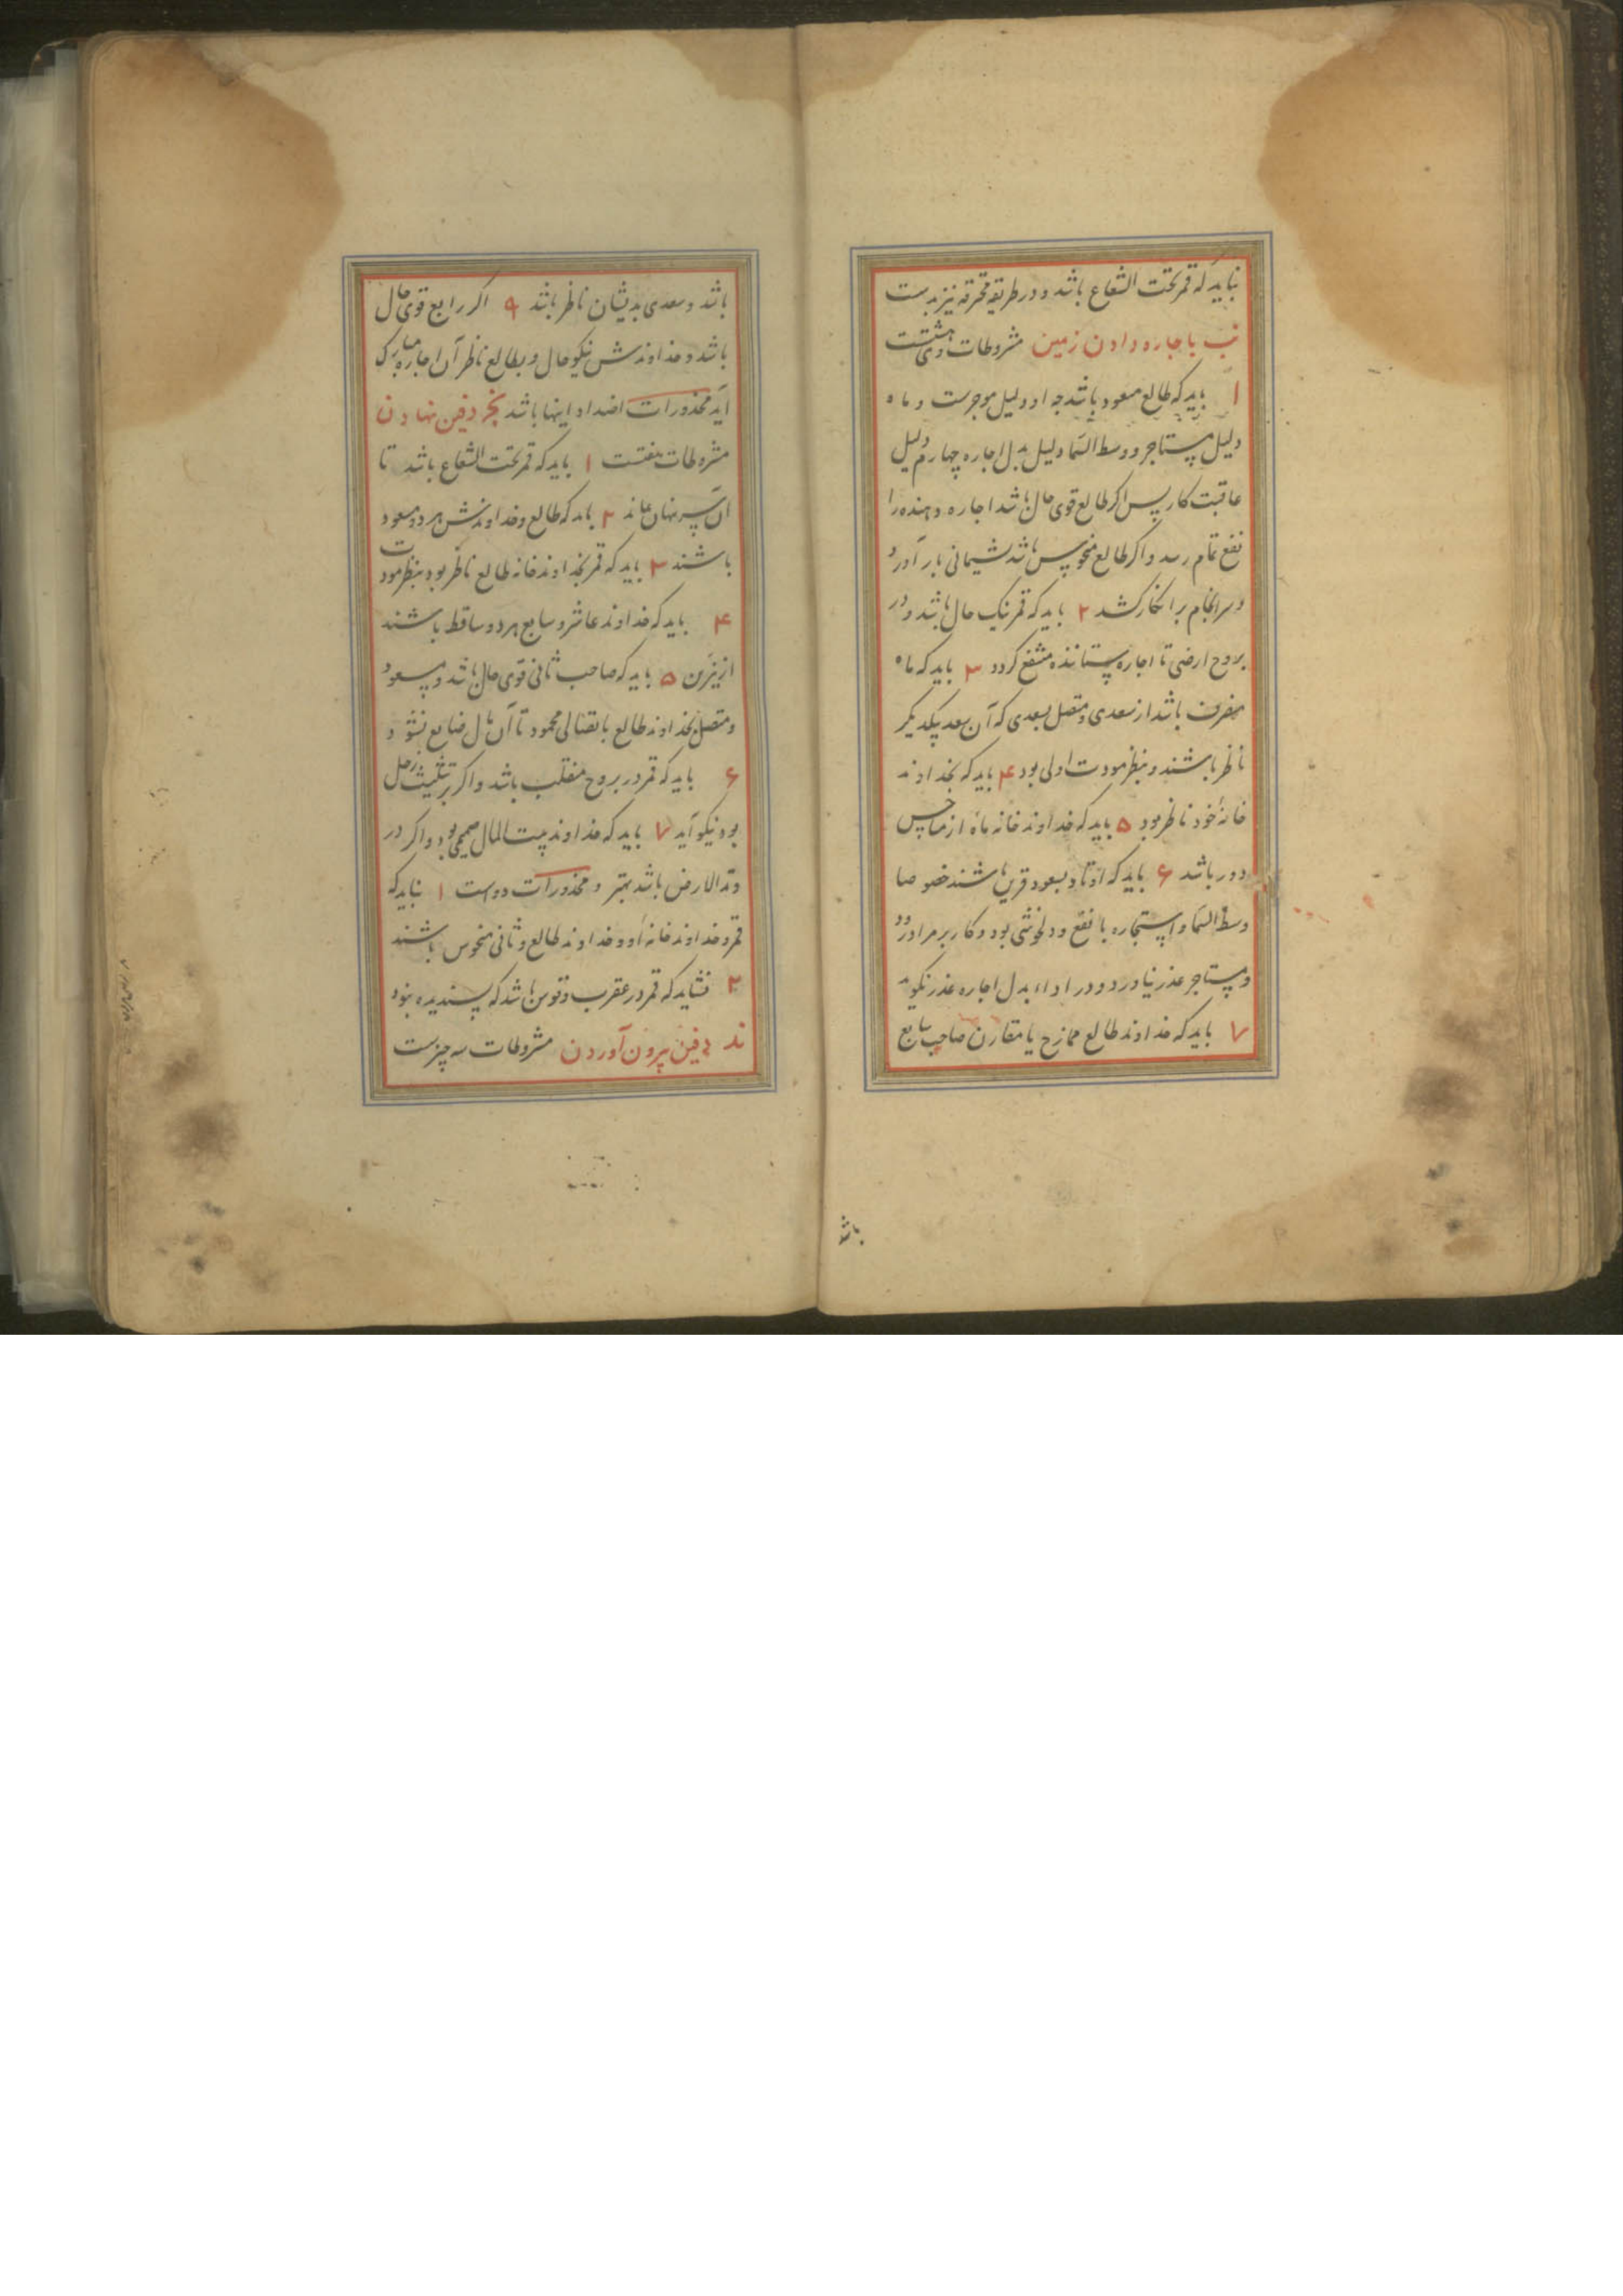 نباید که قمر تحت الشعاع باشد و در طریقه محترقه نیز بدست
نب باجاره دادن زمین مشروطات وی هشتست
ا باید که طالع مسعود باشد چه او دلیل موجرست و ماه
دلیل مستاجر و وسط السما دلیل بدل اجاره چهارم دلیل
عاقبت کار پس اکر طالع قوی حال باشد اجاره دهنده را
نفع تمام رسد و اکر طالع منحوس باشد پشیمانی بار آورد
و سرانجام بر انکار کشد ۲ باید که قمر نیک حال باشد و در
بروج ارضی تا اجاره ستاننده منتفع کردد ۳ باید که ماه
منصرف باشد از سعدی و متصل بسعدی که آن سعد بیکدیکر
ناظر باشند و بنظر مودت اولی بود ۴ باید که بخداوند
خانهٔ خود ناظر بود ۵ باید که خداوند خانه ماه از مناحس
دور باشد ۶ باید که اوتاد بسعود قرین باشند خصوصا
وسط السما و استجاره با نفع و دلخوشی بود و کار بر مراد رود
و مستاجر عذر نیاورد و در اداء بدل اجاره عذر نکوید
۷ باید که خداوند طالع ممازج یا مقارن صاحب سابع
باشد
باشد و سعدی بدیشان ناظر باشد ۹ اکر رابع قوی حال
باشد و خداوندش نیکو حال و بطالع ناظر آن اجاره مبارک
آید محذورات اضداد اینها باشد نج دفین نهادن
مشروطات هفتست ۱ باید که قمر تحت الشعاع باشد تا
آن سر نهان ماند ۲ باید که طالع و خداوندش هر دو مسعود
باشند ۳ باید که قمر بخداوند خانه طالع ناظر بود بنظر مودت
۴ باید که خداوند عاشر و سابع هر دو ساقط باشند
از نیرین ۵ باید که صاحب ثانی قوی حال باشد و مسعود
و متصل بخداوند طالع باتصالی محمود تا آن مال ضایع نشود
۶ باید که قمر در بروج منقلب باشد و اکر بتثلیث زحل
بود نیکو آید ۷ باید که خداوند بیت المال صمیمی بود و اکر در
وتد الارض باشد بهتر و محذورات دواست ۱ نباید که
قمر و خداوند خانهٔ او و خداوند طالع و ثانی منحوس باشند
۲ نشاید که قمر در عقرب و قوس باشد که پسندیده نبود
ند دفین بیرون آوردن مشروطات سه چیزست